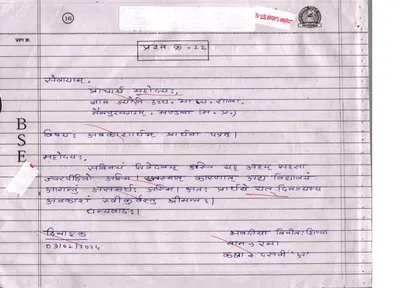 16
प्रश्न क्र.
प्रश्न क्र - 22
सेवायाम्,
प्राचार्य महोदयः,
ज्ञान ज्योति उच्च. मा. वि. शाला,
मण्डला (म. प्र.)
विषयः अवकाशार्थम् प्रार्थना पत्रम्।
महोदयः,
सविनयं निवेदनम् अस्ति यत् अहम् सहसा
ज्वरपीडितो अस्मि। कारणात् अद्य विद्यालयं
आगन्तुं असमर्थः अस्मि। अतः प्रार्थये यत् दिनत्रयस्य
अवकाशं स्वीकुर्वन्तु श्रीमन्तः।
धन्यवादः।
दिनांक
03/02/2024
भवदीया विनीतः शिष्या
नाम रमा
कक्षा दसवीं "अ"
B
S
E